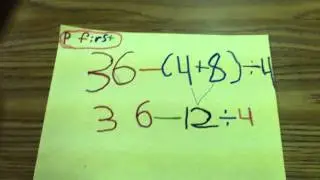 P first
36-(4+8)÷4
36-12÷4